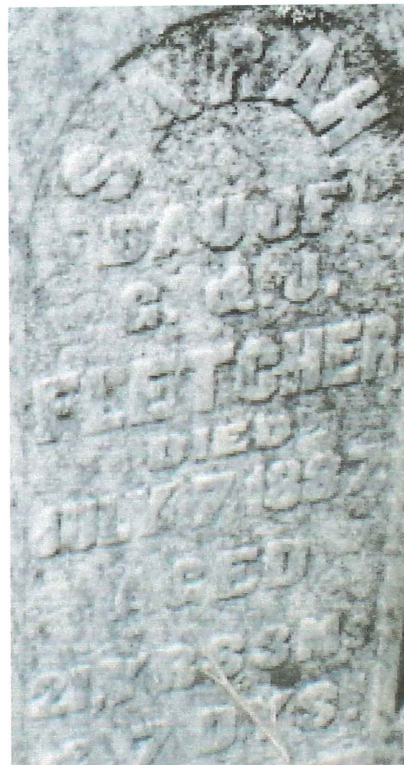 SARAH
DAU OF
G. & J.
FLETCHER
DIED
JULY 17 1887
AGED
21 YRS 3 MS
DAYS